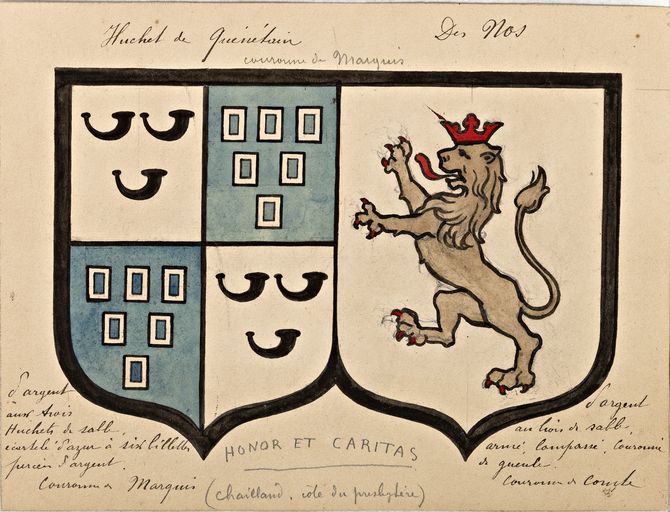 Huchet de Quénétain
Des Nos
couronne de Marquis
d'argent
aux trois
Huchets de sable
écartelé d'azur à six billettes
percées d'argent.
Couronne de Marquis
HONOR ET CARITAS
(Chailland, côté du presbytère)
d'argent
au lion de sable,
armé, lampassé, couronné
de gueule.
Couronne de Comte